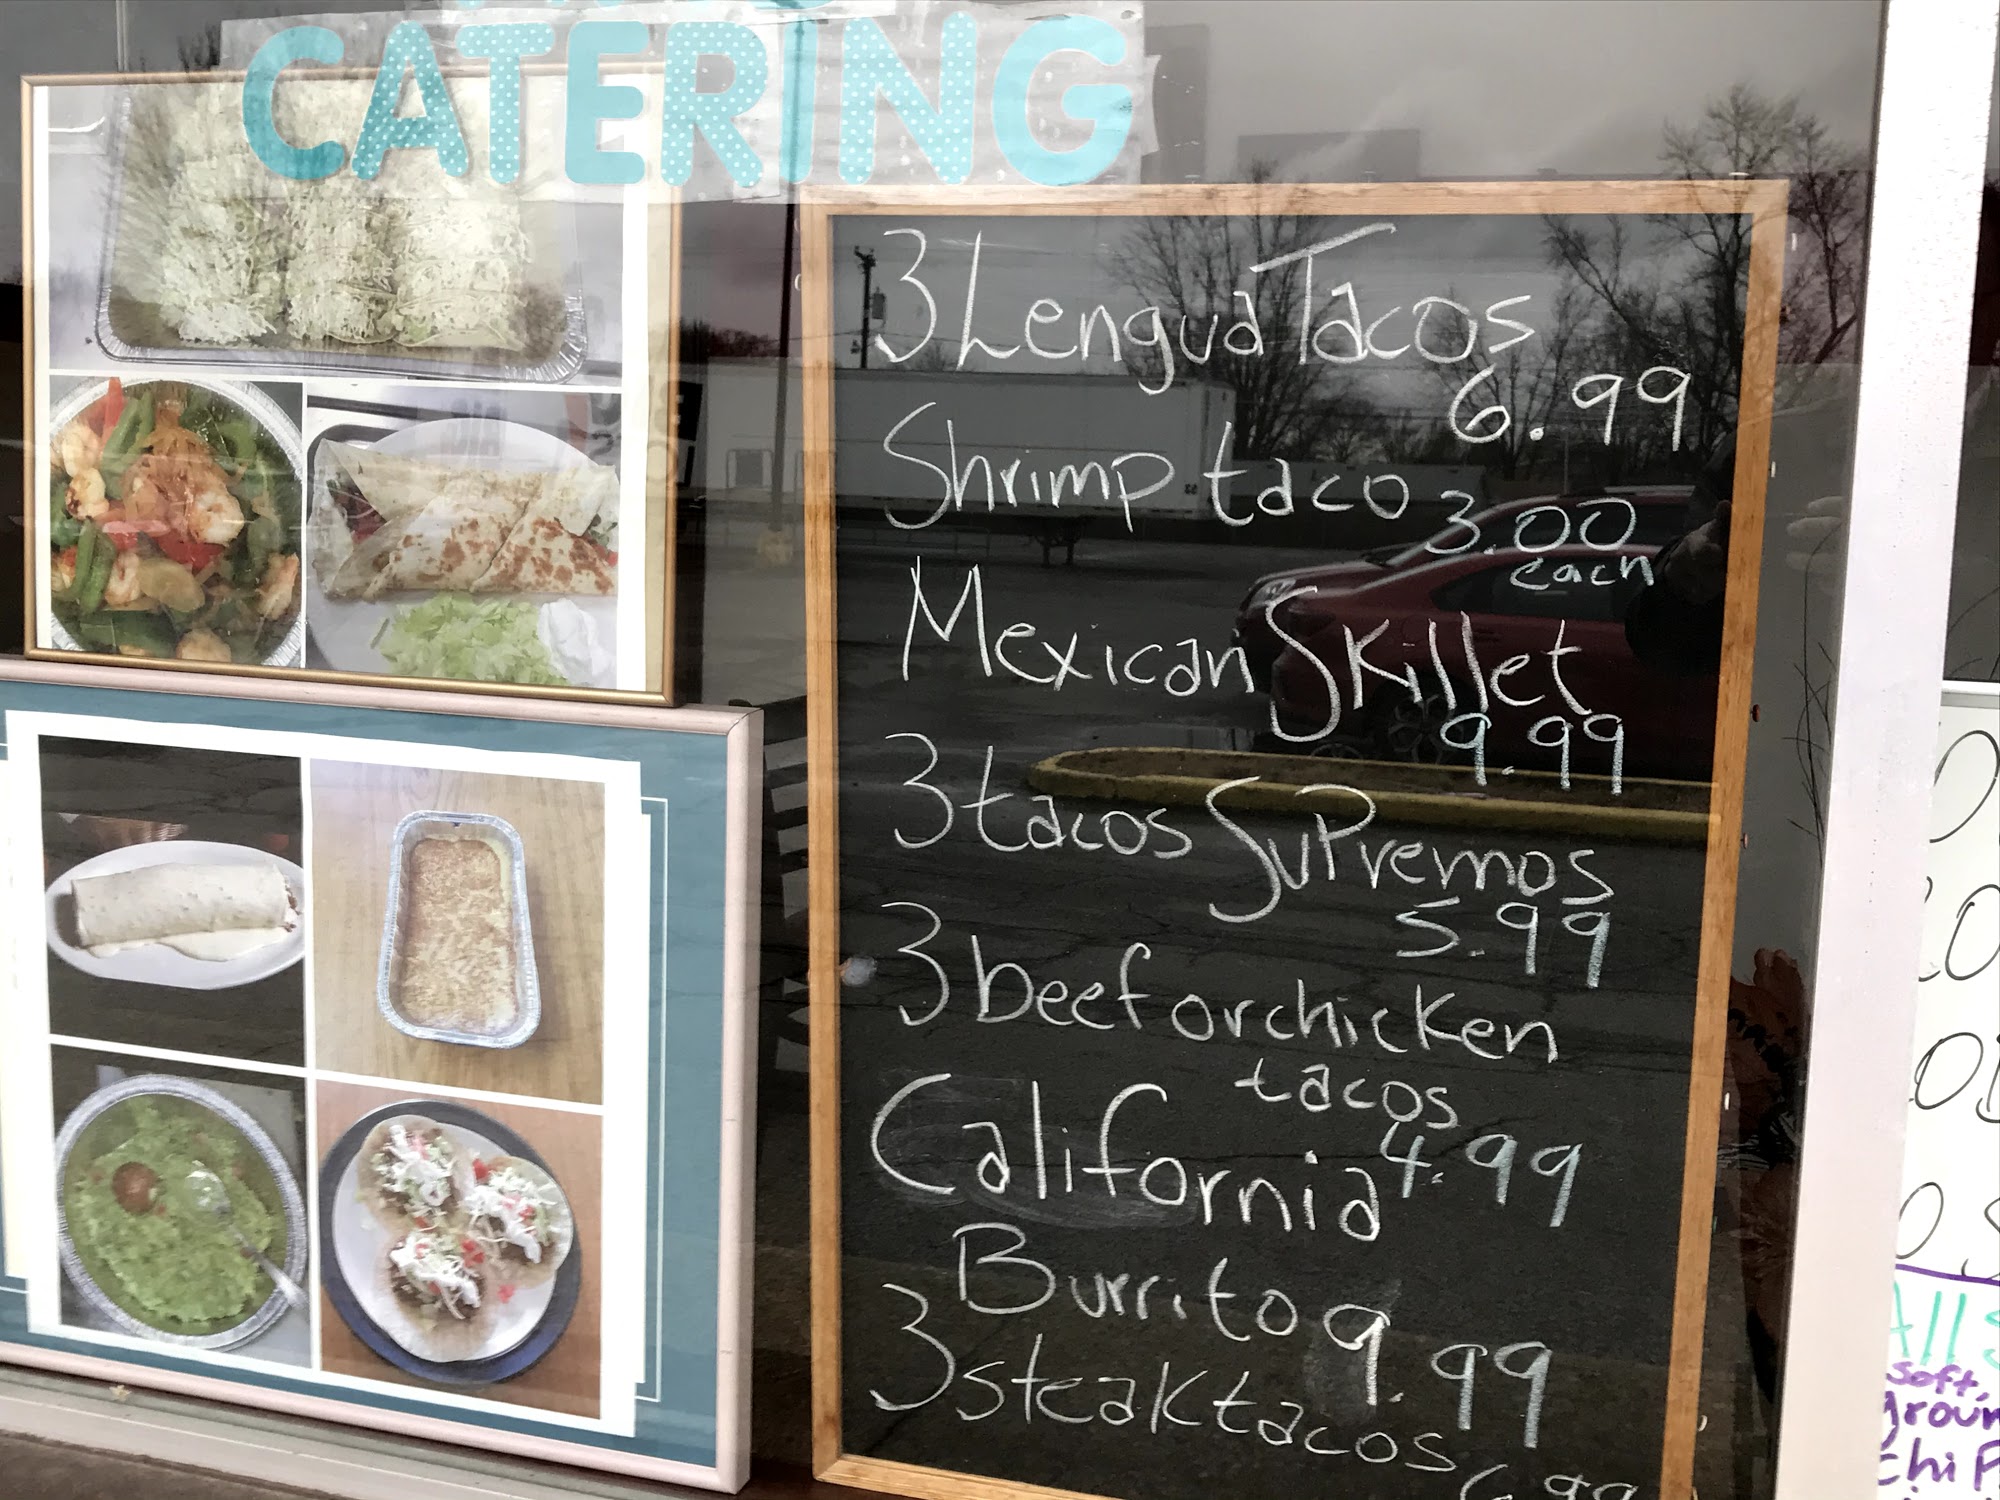 CATERING
3 Lengua Tacos
6.99
Shrimp taco 3.00
each
Mexican Skillet
9.99
3 tacos SuPremos
5.99
3 beef or chicken
tacos
4.99
California
Burrito 9.99
3 steak tacos
6.99
All
soft,
chiP